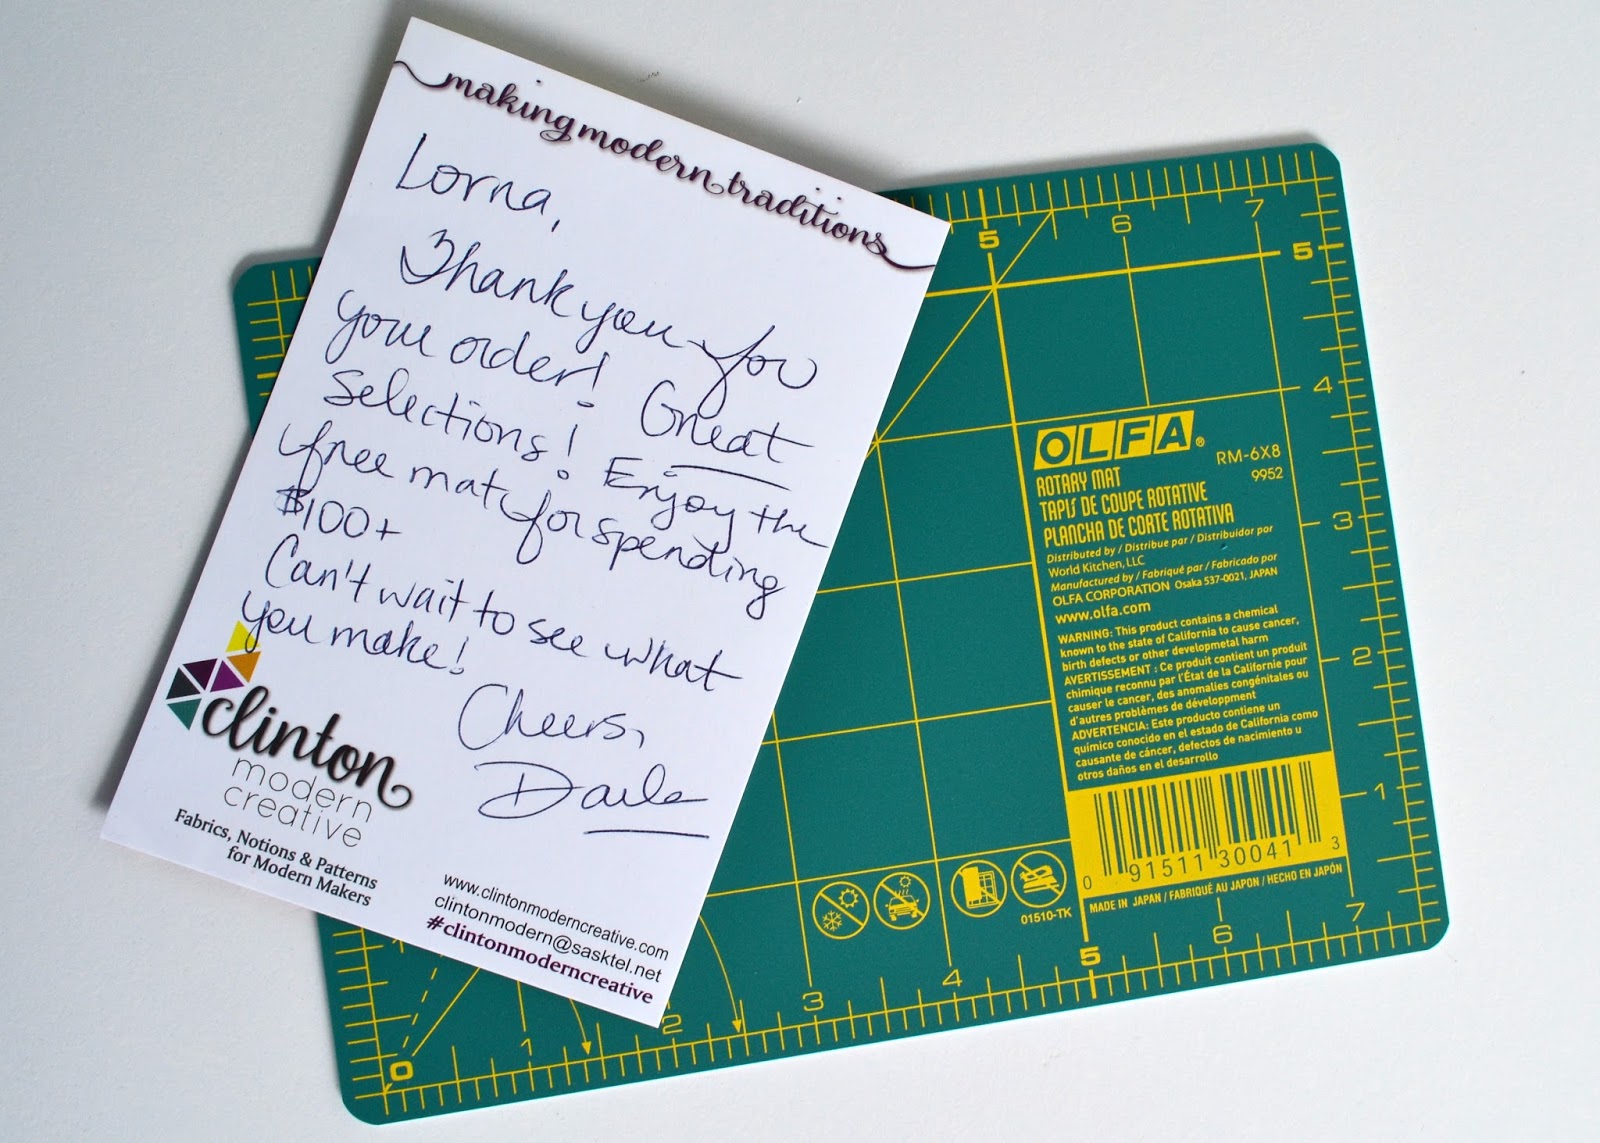 making modern traditions
Lorna,
Thank you for
your order! Great
selections! Enjoy the
free mat for spending
$100+
Can't wait to see what
you make!
Cheers,
clinton
modern
creative
Fabrics, Notions & Patterns
for Modern Makers
www.clintonmoderncreative.com
clintonmodern@sasktel.net
#clintonmoderncreative
5 6 7
5
4
3
2
1
OLFA®
RM-6X8
9952
ROTARY MAT
TAPIS DE COUPE ROTATIVE
PLANCHA DE CORTE ROTATIVA
Distributed by / Distribue par / Distribuidor por
World Kitchen, LLC
Manufactured by / Fabriqué par / Fabricado por
OLFA CORPORATION Osaka 537-0021, JAPAN
www.olfa.com
WARNING: This product contains a chemical
known to the state of California to cause cancer,
birth defects or other developmetal harm
AVERTISSEMENT : Ce produit contient un produit
chimique reconnu par l'État de la Californie pour
causer le cancer, des anomalies congénitales ou
d'autres problèmes de développment
ADVERTENCIA: Este producto contiene un
químico conocido en el estado de California como
causante de cáncer, defectos de nacimiento u
otros daños en el desarrollo
0 91511 30041 3
MADE IN JAPAN / FABRIQUÉ AU JAPON / HECHO EN JAPÓN
01510-TK
0 1 2 3 4 5 6 7